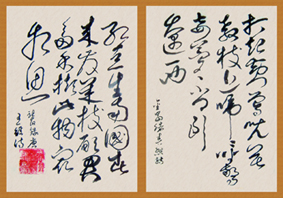 打起黄莺儿莫
教枝上啼啼时惊
妾梦不得到
辽西
金昌绪春怨
红豆生南國春
来发几枝愿君
多采撷此物最
相思
王维诗